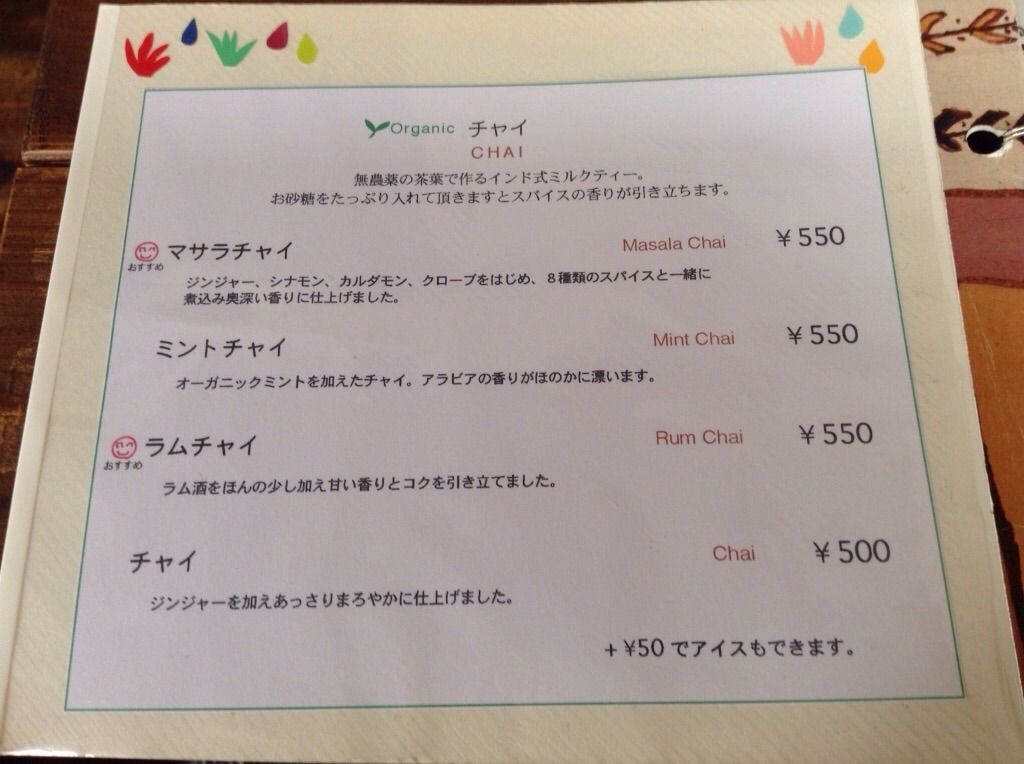 Organic チャイ
CHAI
無農薬の茶葉で作るインド式ミルクティー。
お砂糖をたっぷり入れて頂きますとスパイスの香りが引き立ちます。
おすすめ マサラチャイ Masala Chai ¥550
ジンジャー、シナモン、カルダモン、クローブをはじめ、８種類のスパイスと一緒に
煮込み奥深い香りに仕上げました。
ミントチャイ Mint Chai ¥550
オーガニックミントを加えたチャイ。アラビアの香りがほのかに漂います。
おすすめ ラムチャイ Rum Chai ¥550
ラム酒をほんの少し加え甘い香りとコクを引き立てました。
チャイ Chai ¥500
ジンジャーを加えあっさりまろやかに仕上げました。
+¥50でアイスもできます。